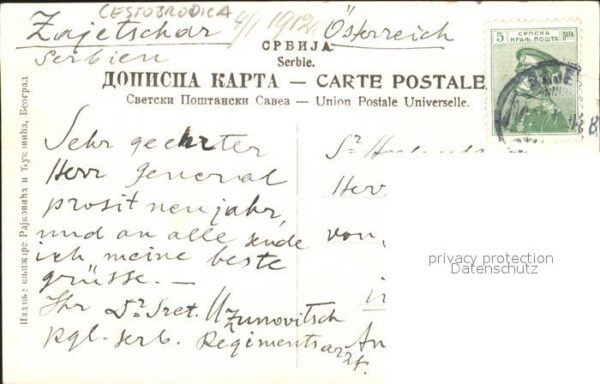 CESTOBRODICA
Zajetschar 4/I 1912. Österreich
Serbien
СРБИЈА
Serbie.
ДОПИСНА КАРТА — CARTE POSTALE
Светски Поштански Савез — Union Postale Universelle.
СРПСКА
КРАЉ. ПОШТА
5 ПАРА
Sehr geehrter
Herr General
prosit neujahr,
und an alle sende
ich meine beste
grüsse. —
Ihr Dr Sret. Uzunovitsch
kgl. serb. Regimentsarzt.
Sr
Her
von
in
An
privacy protection
Datenschutz
Издање књижаре Рајковића и Ћуковића, Београд